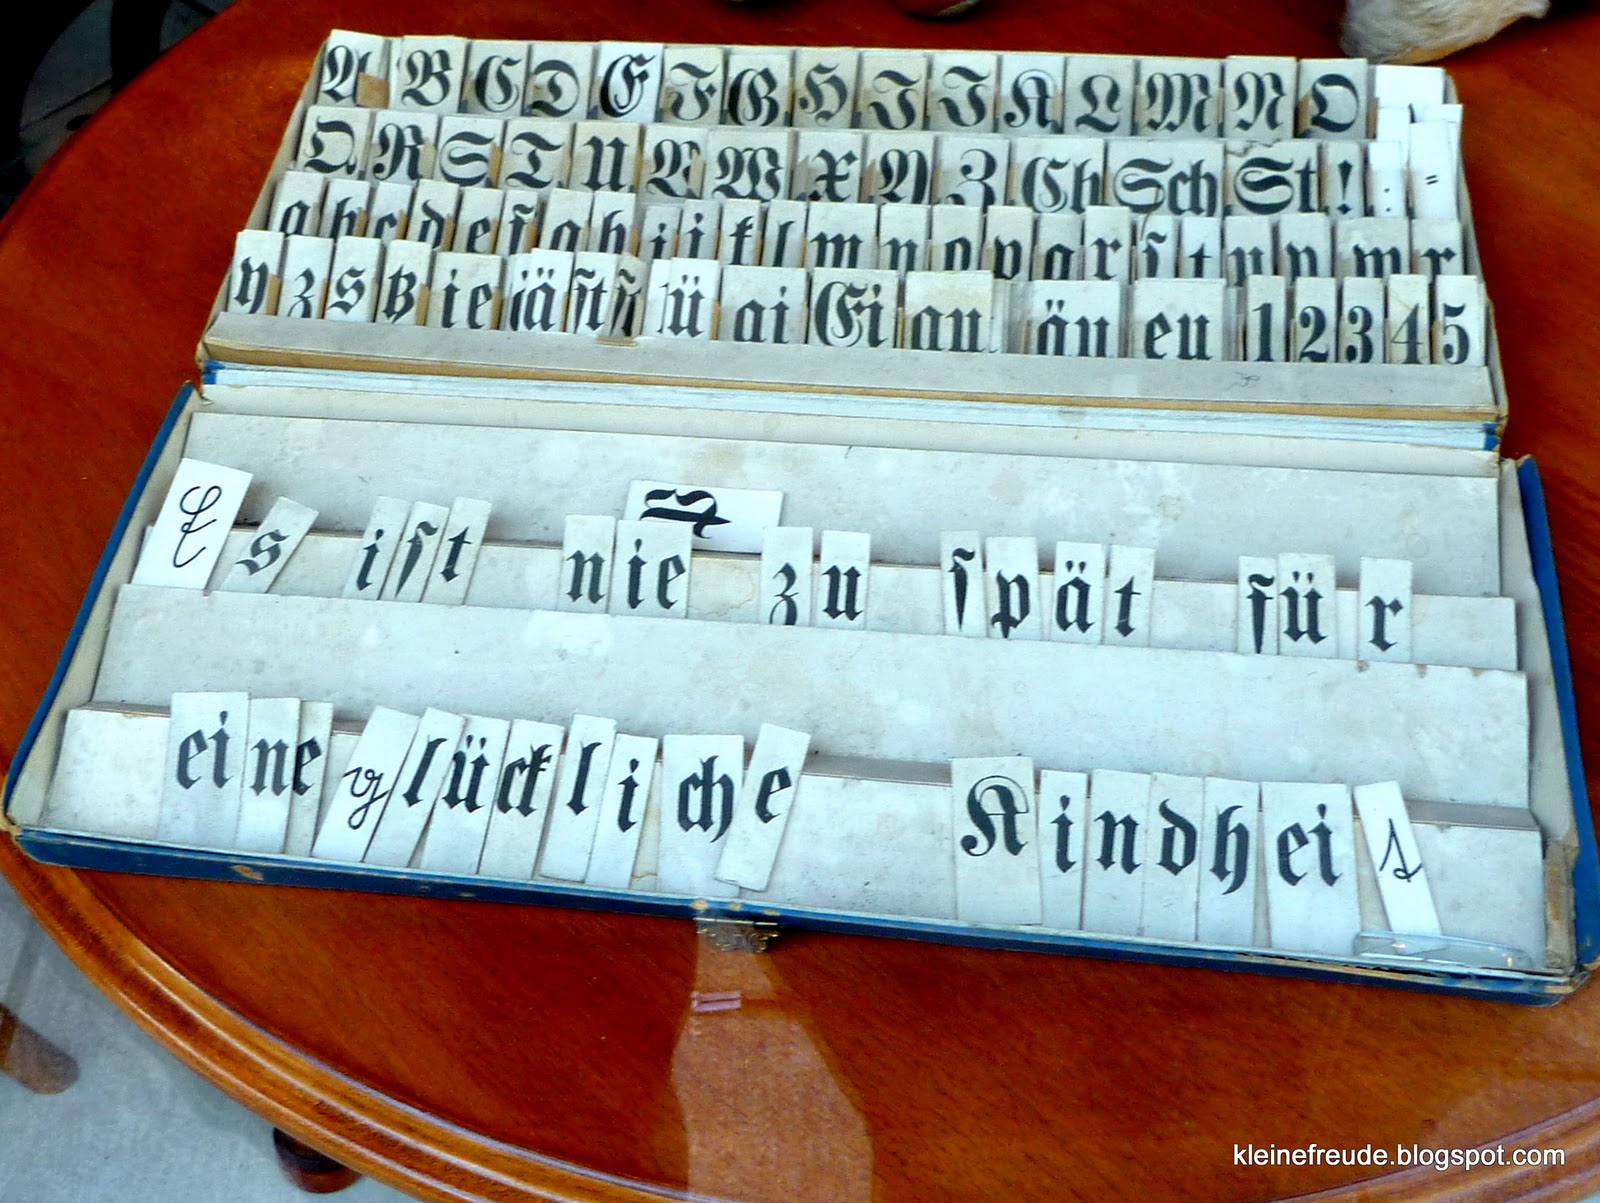 A B C D E F G H I J K L M N O
Q R S T U V W X Y Z Ch Sch St ! : =
a b c d e f g h i j k l m n o p q r ſ t u v w x
y z s ß ie ä ſt ü ai Ei au äu eu 1 2 3 4 5
Es iſt nie zu ſpät für
eine glückliche Kindheit
kleinefreude.blogspot.com